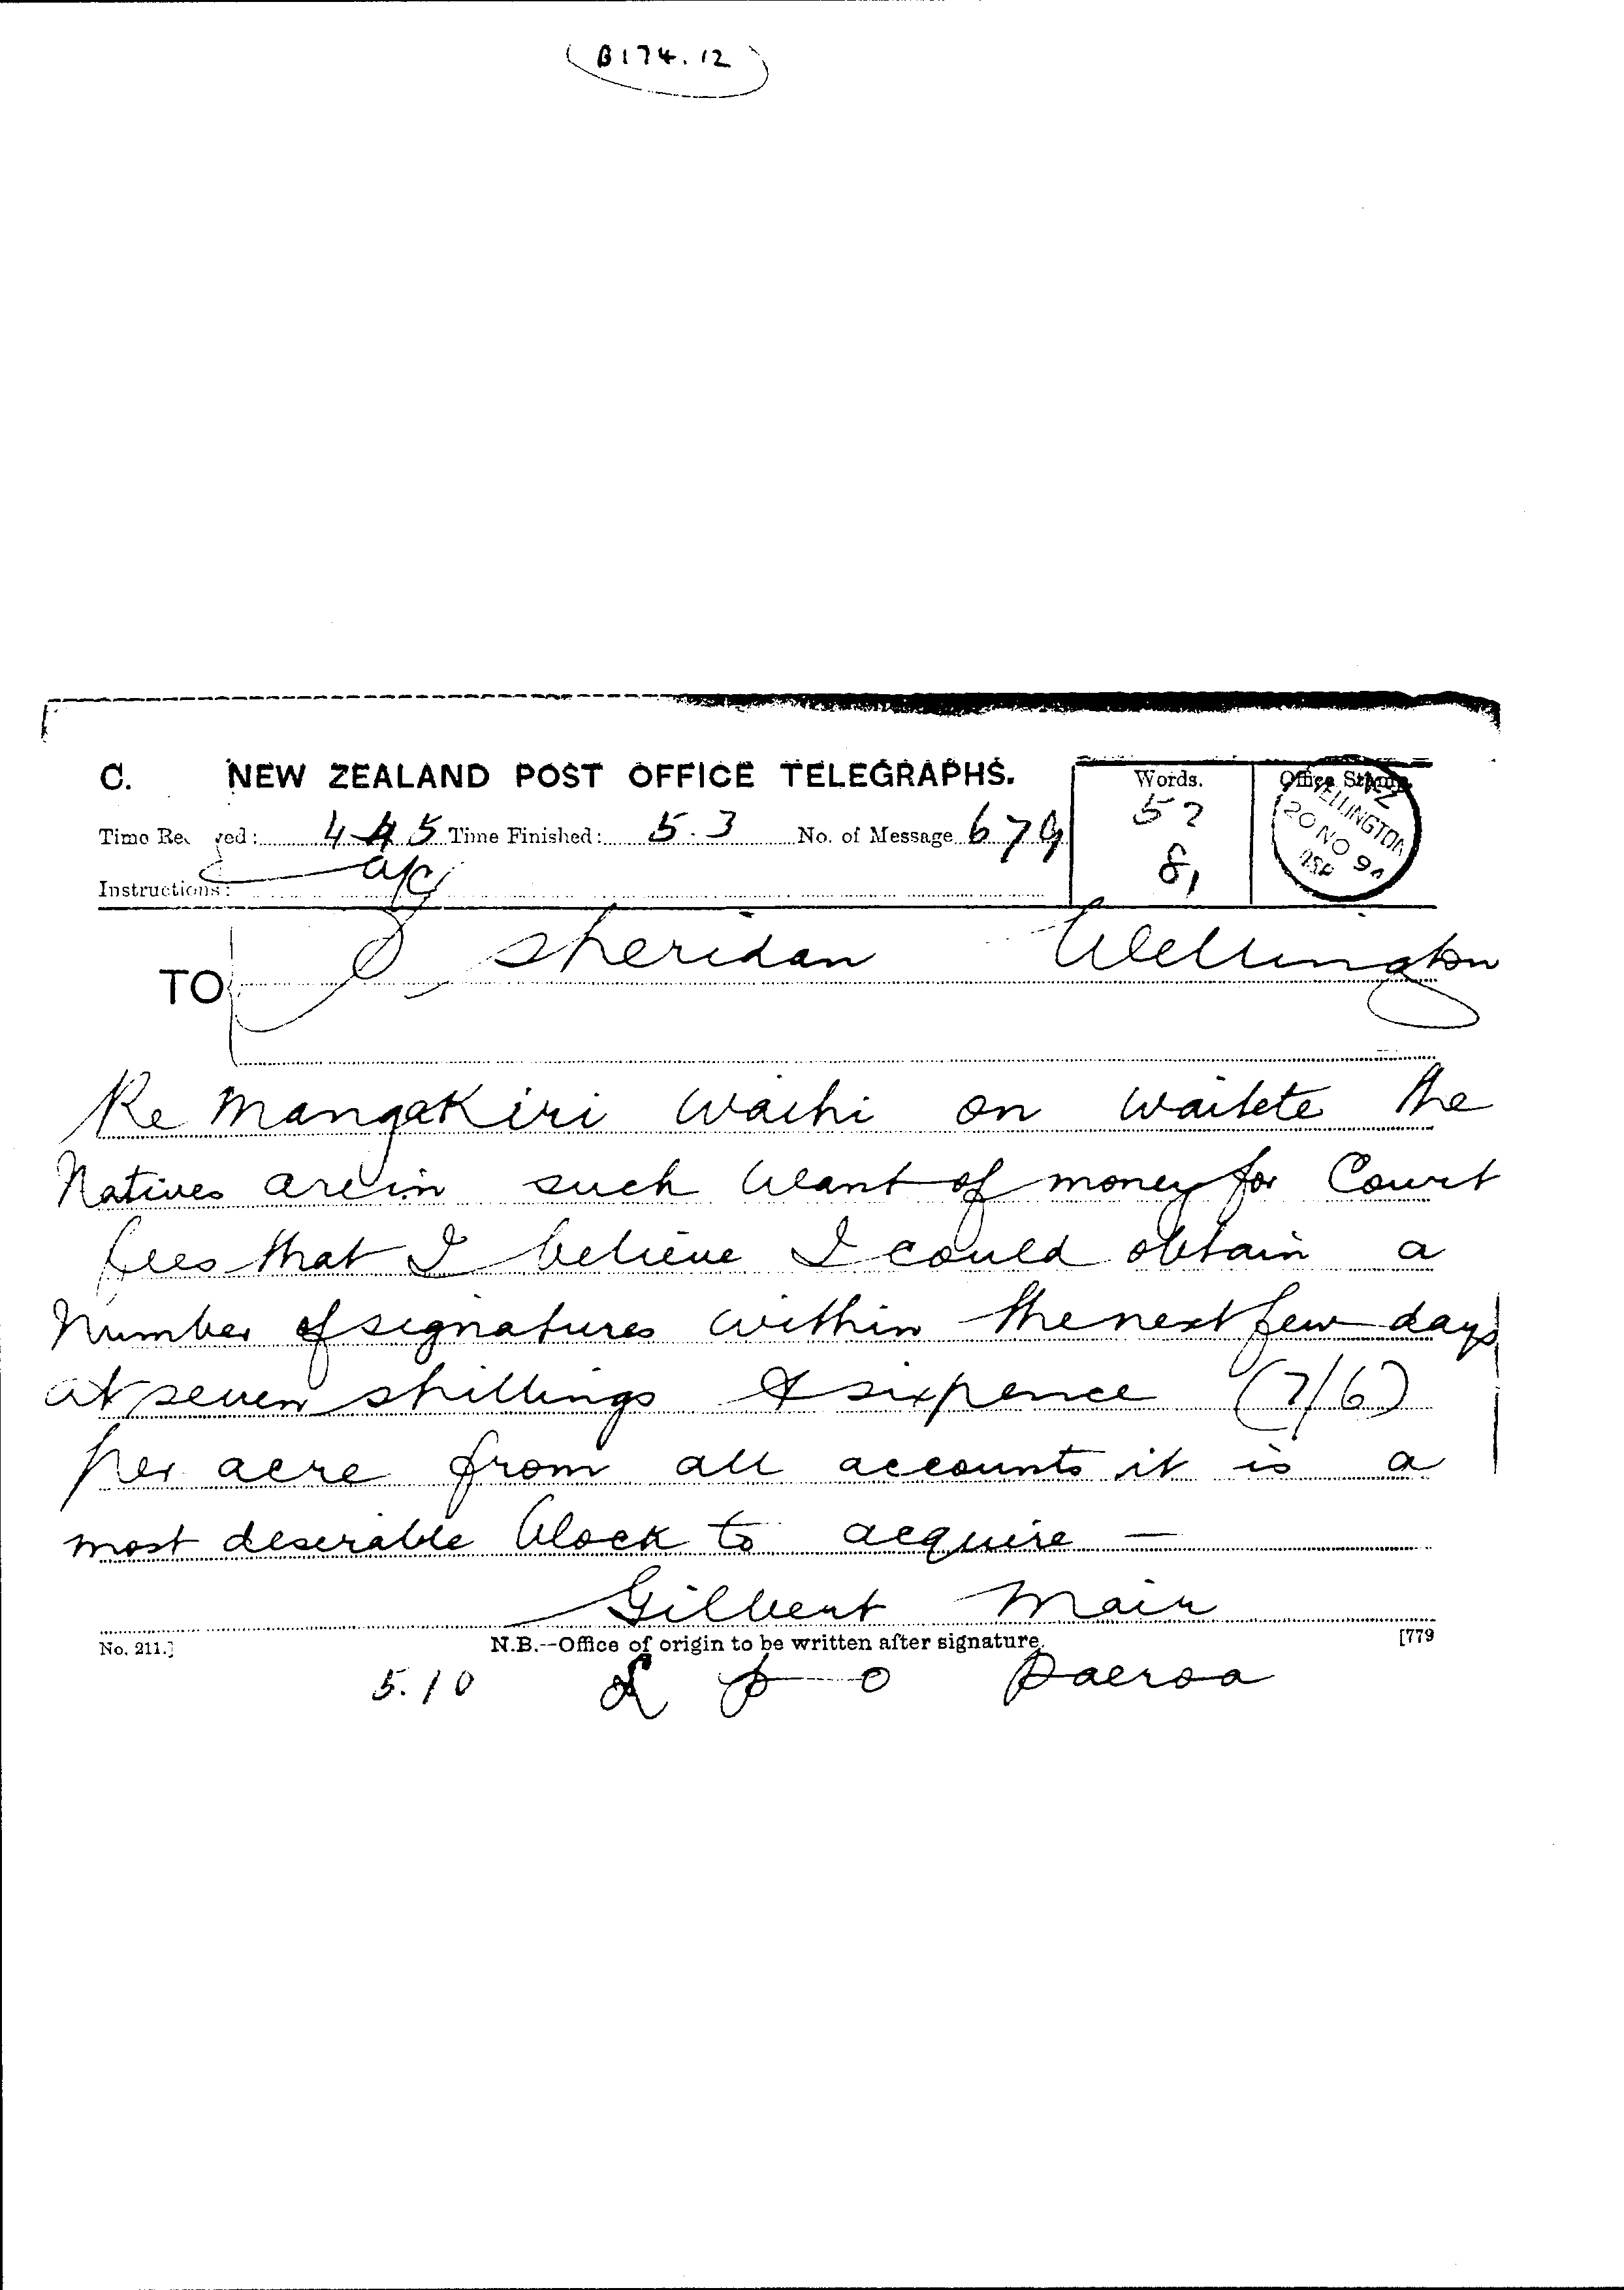 B174.12
C. NEW ZEALAND POST OFFICE TELEGRAPHS.
Words.
Office Stamp.
Time Re ved: 4 45 Time Finished: 5.3 No. of Message 679
52
81
WELLINGTON N-Z
20 NO 94
Instructions:
TO Sheridan Wellington
Re Mangakiri Waihi on Waitete the
Natives are in such want of money for Court
fees that I believe I could obtain a
Number of signatures within the next few days
at seven shillings & sixpence (7/6)
per acre from all accounts it is a
most deserable block to acquire —
Gilbert Mair
No. 211.] N.B.--Office of origin to be written after signature. [779
5.10 L P O Paeroa